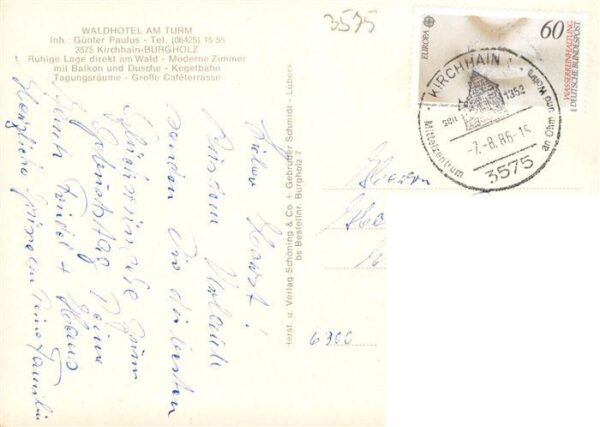 WALDHOTEL AM TURM
Inh.: Günter Paulus - Tel. (06425) 15 55
3575 Kirchhain-BURGHOLZ
Ruhige Lage direkt am Wald - Moderne Zimmer
mit Balkon und Dusche - Kegelbahn
Tagungsräume - Große Caféterrasse
3575
Lieber Horst!
Aus dem Urlaub
senden Dir die besten
Glückwünsche zum
Geburtstag Deine
+ Klaus
Herzliche Grüße an Deine Familie
Herst. u. Verlag Schöning & Co + Gebrüder Schmidt - Lübeck
bs Bestellnr. Burgholz 7
Herrn
6300
EUROPA
60
WASSERREINHALTUNG
DEUTSCHE BUNDESPOST
KIRCHHAIN
seit 1352
-7.-8.86-15
Mittelzentrum an Ohm und Wohra
3575